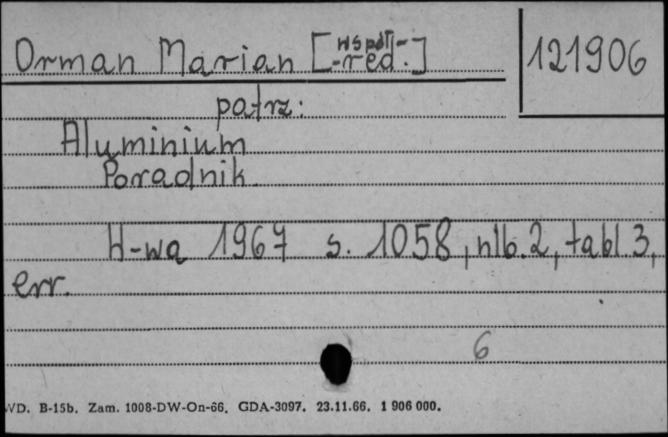 Orman Marian [współ-
-red.]
121906
patrz:
Aluminium
Poradnik
W-wa 1967 s. 1058, nlb. 2, tabl. 3,
err.
6
WD. B-15b. Zam. 1008-DW-On-66. GDA-3097. 23.11.66. 1 906 000.